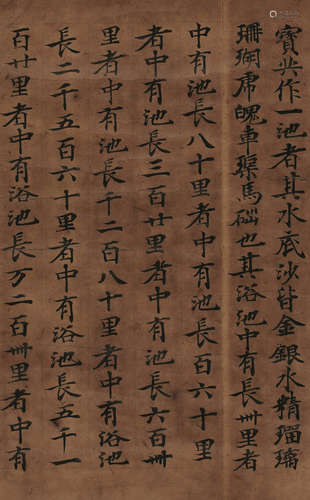 寳共作一池者其水底沙皆金銀水精瑠璃
珊瑚虎魄車璖馬碯也其浴池中有長卌里者
中有池長八十里者中有池長百六十里
者中有池長三百廿里者中有池長六百卌
里者中有池長千二百八十里者中有浴池
長二千五百六十里者中有浴池長五千一
百廿里者中有浴池長万二百卌里者中有